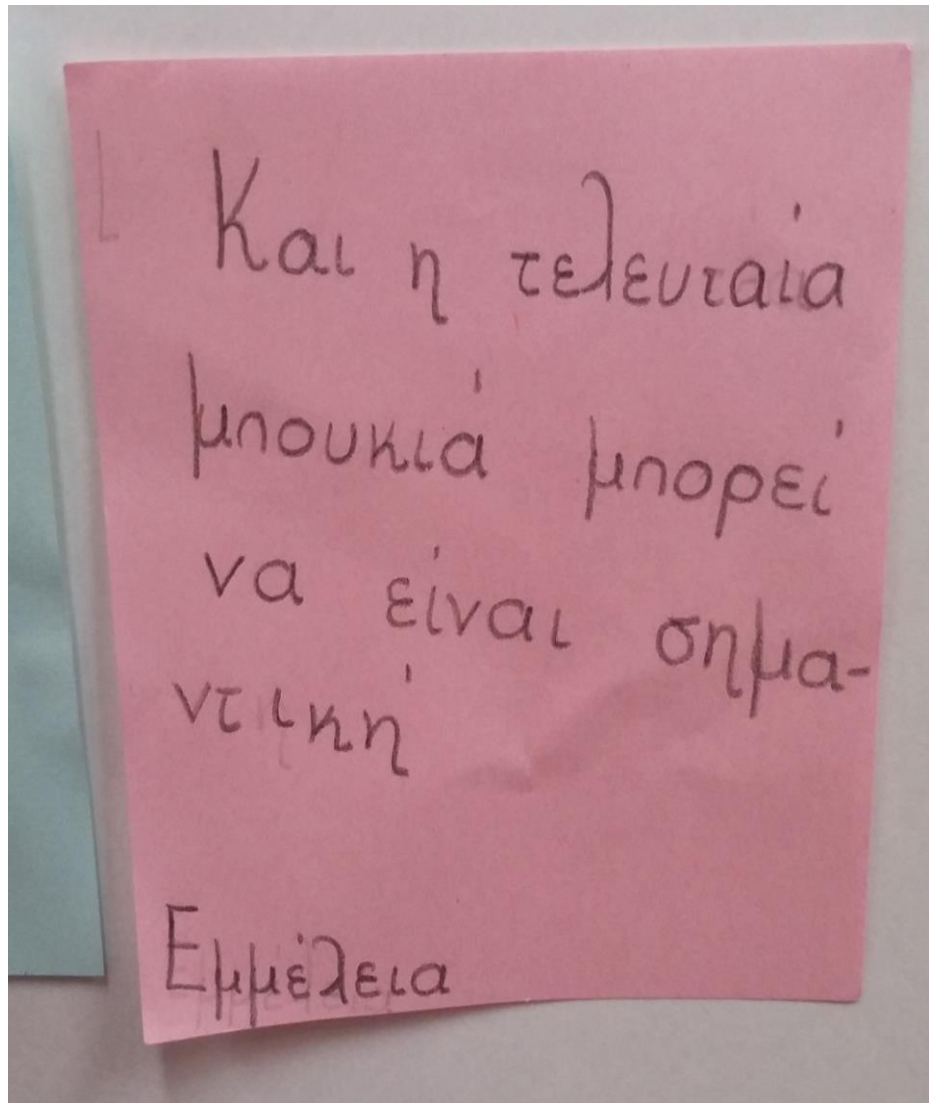 Και η τελευταία
μπουκιά μπορεί
να είναι σημα-
ντική
Εμμέλεια